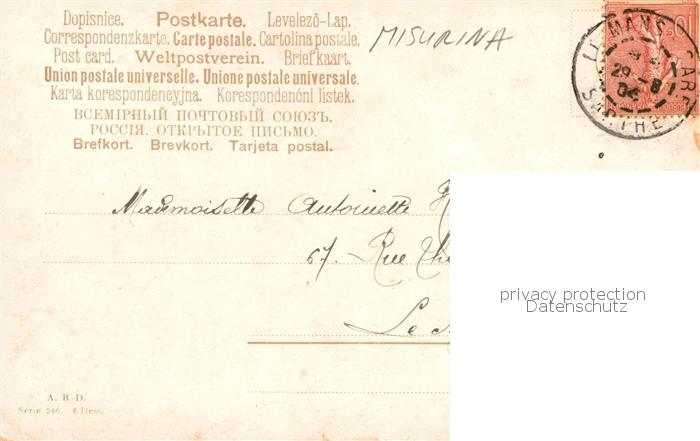 Dopisnice. Postkarte. Levelező-Lap.
Correspondenzkarte. Carte postale. Cartolina postale.
Post card. Weltpostverein. Briefkaart.
Union postale universelle. Unione postale universale.
Karta korespondencyjna. Korespondenóni lístek.
ВСЕМІРНЫЙ ПОЧТОВЫЙ СОЮЗЪ.
РОССІЯ. ОТКРЫТОЕ ПИСЬМО.
Brefkort. Brevkort. Tarjeta postal.
MISURINA
LE MANS GARE
29 - 8
SARTHE
10
Mademoiselle Antoinette
67. Rue
Le
privacy protection
Datenschutz
A. B-D.
Serie 246. 6 Dess.